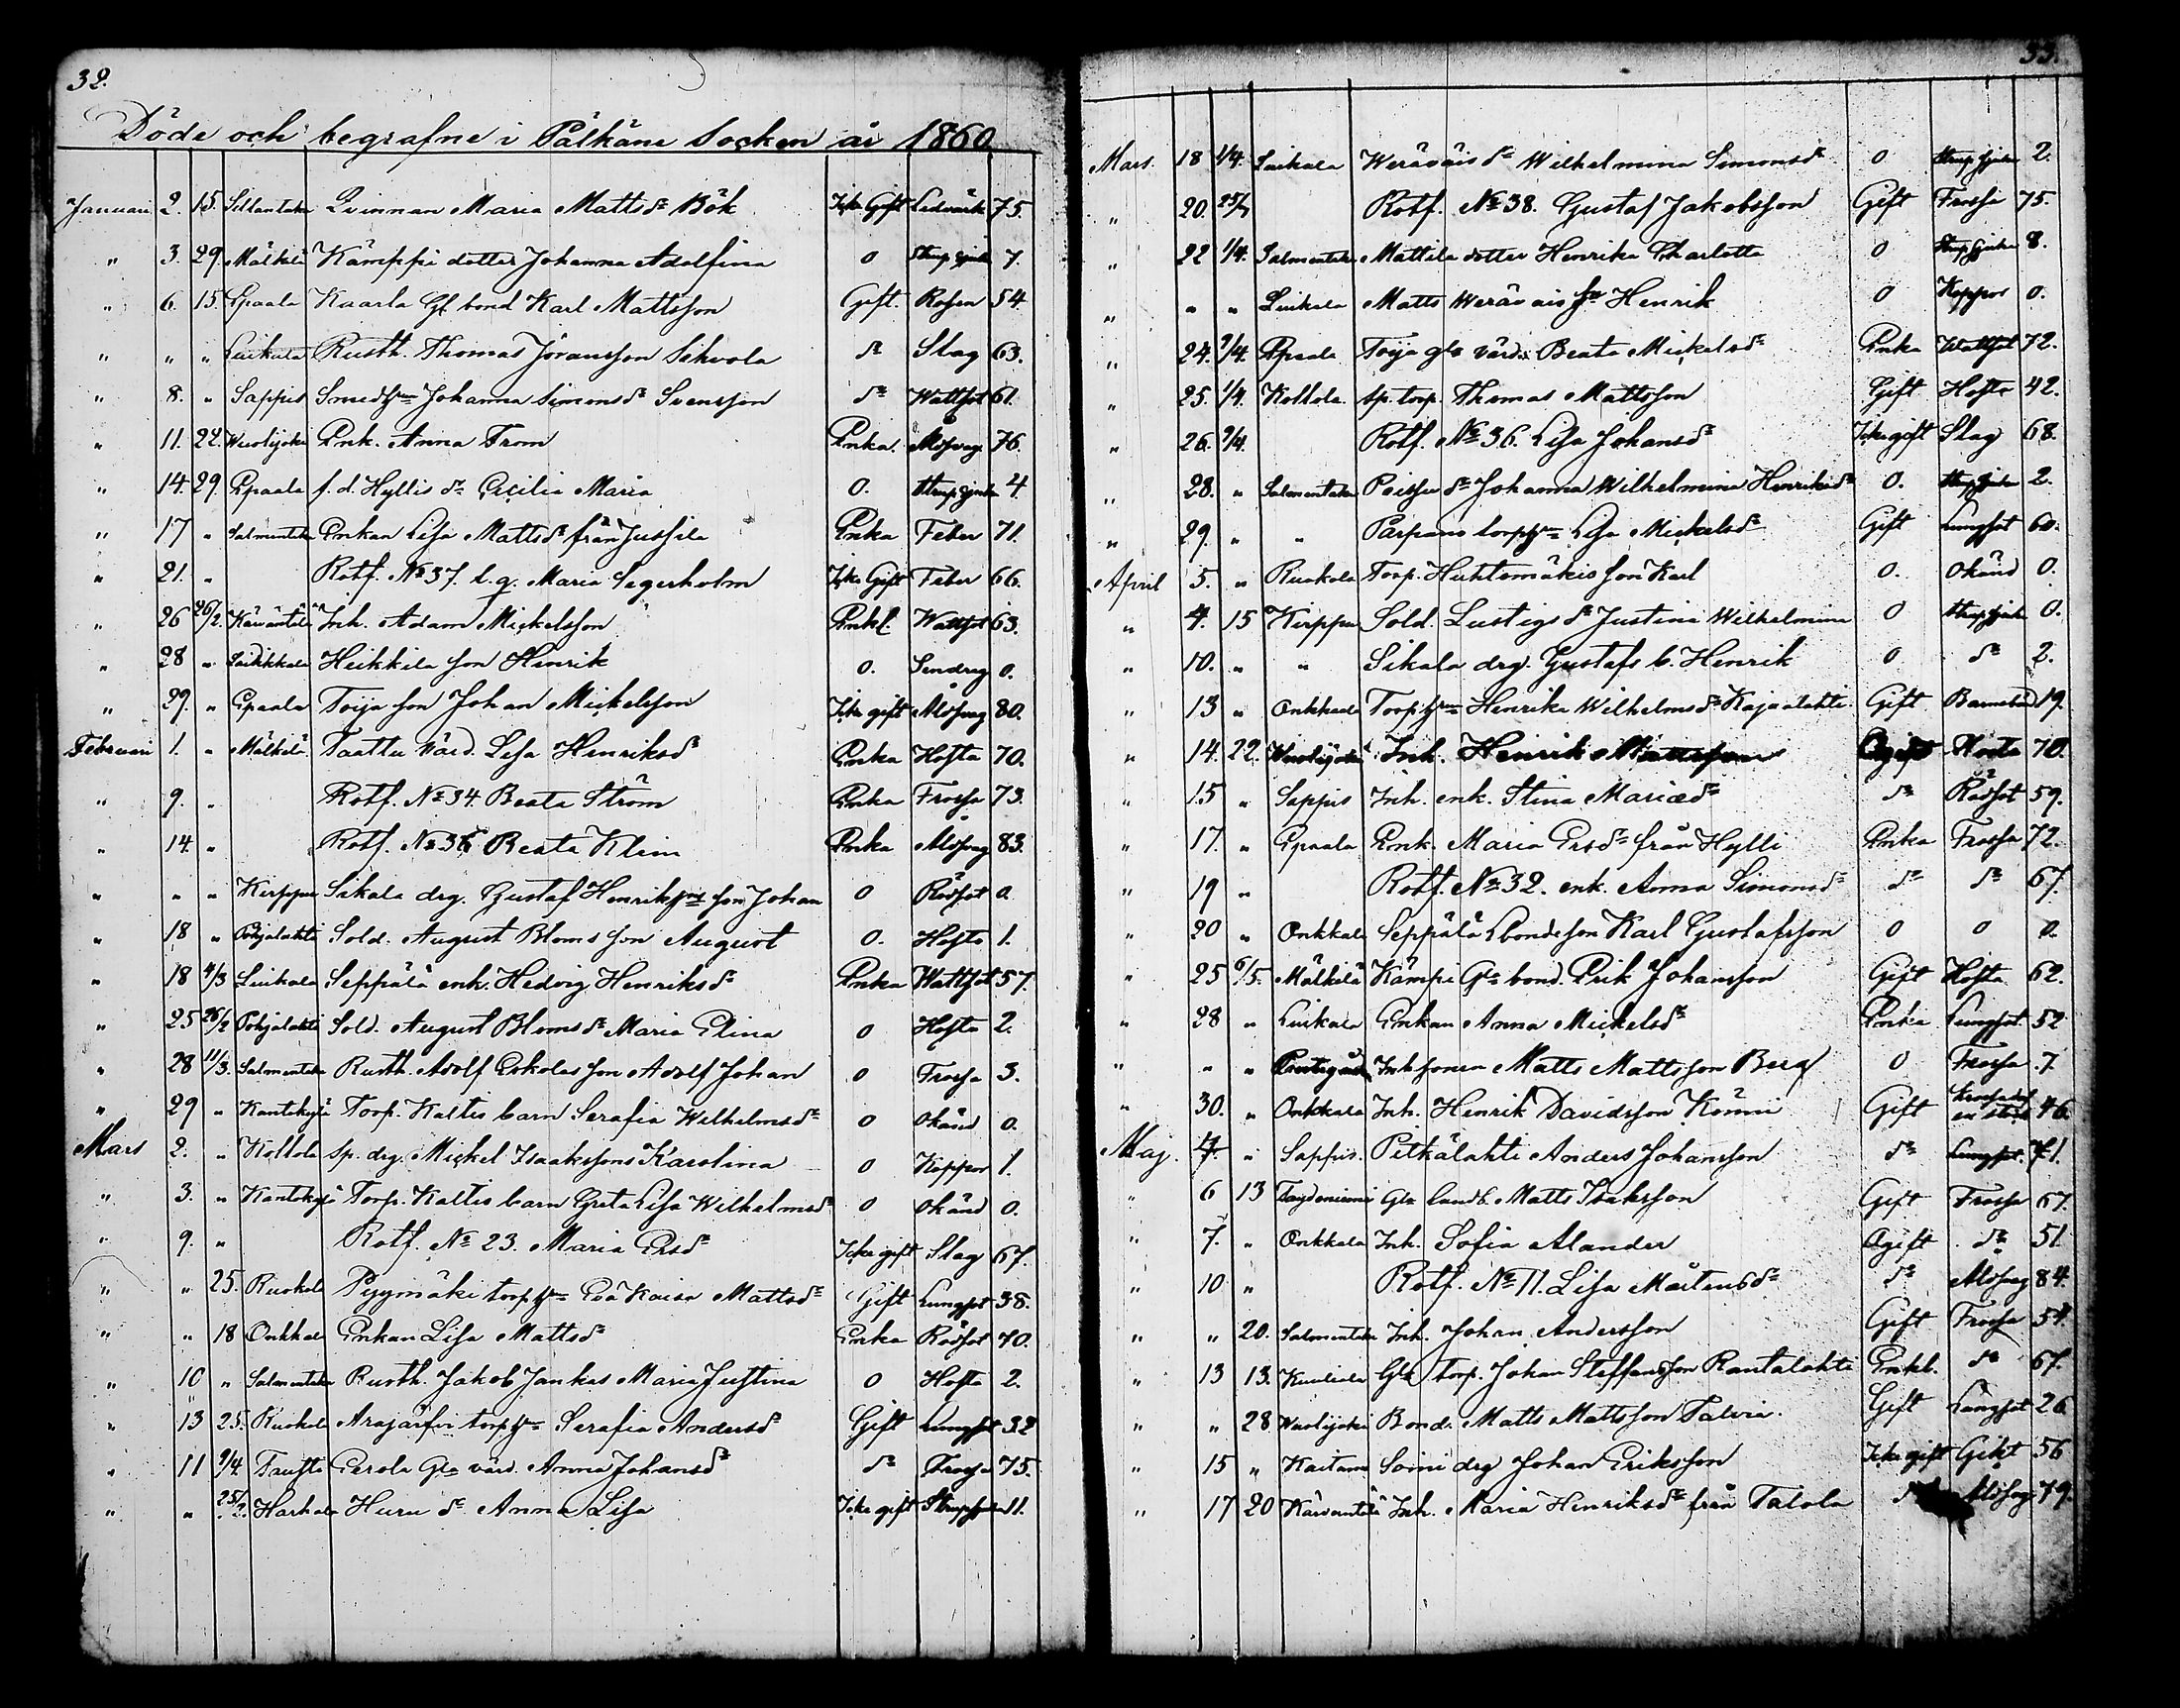 32.
Döde och begrafne i Pälkäne Socken år 1860
Januari 2. 15. Sillantaka Qvinnan Maria Mattsdr Bök Icke Gift Ledvärk 75.
" 3. 29. Mälkilä Kämppi dotter Johanna Adolfina 0 Strupsjuka 7.
" 6. 15. Epaala Kaarla Gl. bond Karl Mattsson Gift. Rosen 54.
" " " Luikala Rusth. Thomas Jöransson Sihvola dr Slag 63.
" 8. " Sappis Smedhrun Johanna Simonsdr Svensson dr Wattsot 61.
" 11. 22. Wuolijoki Enk. Anna From Enka. Åldsvag. 76.
" 14. 29. Epaala f.d. Hyllis dr Cecilia Maria 0. Strupsjuka 4
" 17 " Salmentaka Enkan Lisa Mattsdr från Jussila Enka Feber 71.
" 21. " Rotf. No 37. l.g. Maria Segerholm Icke Gift Feber 66.
" 26 26/2. Kärväntälä Inh. Adam Mickelsson Enkl. Wattsot 63.
" 28 " Laikkala Heikkila son Henrik 0. Sendrag 0.
" 29. " Epaala Toija son Johan Mickelsson Icke gift Åldsvag 80.
Februari 1. " Mälkilä Taattu värd. Lisa Henriksdr Enka Hosta 70.
" 9. " Rotf. No 34. Beata Ström Enka Frossa 73.
" 14. " Rotf. No 36 Beata Klim Enka Åldsvag 83.
" " " Kirppu Sikala drg. Gustaf Henrikssons son Johan 0 Rödsot 0.
" 18 " Pohjalahti Sold. August Bloms son August 0. Hosta 1.
" 18 4/3 Luikala Seppälä enk. Hedvig Henriksdr Enka Wattsot 57.
" 25 26/2 Pohjalahti Sold. August Bloms dr Maria Elina 0 Hosta 2.
" 28 11/3. Salmentaka Rusth. Adolf Eskolas son Adolf Johan 0 Frossa 3.
" 29 " Kantokylä Torp. Kaltis barn Serafia Wilhelmsdr 0 Okänd 0.
Mars 2. " Kollola sp. drg. Mickel Isaakssons Karolina 0 Koppor 1.
" 3. " Kantokylä Torp. Kaltis barn Greta Lisa Wilhelmsdr 0 Okänd 0.
" 9. " Rotf. No 23. Maria Ersdr Icke gift Slag 67.
" " 25. Ruokola Pyymäki torphru Eva Kaisa Mattsdr Gift Lungsot 38.
" " 18 Onkkala Enkan Lisa Mattsdr Enka Rödsot 70.
" 10 " Salmentaka Rusth. Jakob Jankas Maria Justina 0 Hosta 2.
" 13 25. Ruokola Arajärfvi torphru Serafia Andersdr Gift Lungsot 32
" 11 9/4. Tausto Eerola Gla värd. Anna Johansdr dr Frossa 75.
" " 25/2. Harhala Huru dr Anna Lisa Icke gift Strupsjuka 11.
33.
Mars. 18 1/4. Laikala Werävais dr Wilhelmina Simonsdr 0 Strupsjuka 2.
" 20. 25/3 Rotf. No 38. Gustaf Jakobsson Gift Frossa 75.
" 22 1/4. Salmentaka Mattila dotter Henrika Charlotta 0 Strupsjuka 8.
" " " Luikala Matts Werävais son Henrik 0 Koppor 0.
" 24. 9/4. Epaala Toija gla värd. Beata Mickelsdr Enka Wattsot 72.
" 25. 1/4. Kollola sp. torp. Thomas Mattsson Gift Hosta 42.
" 26. 9/4. Rotf. No 36. Lisa Johansdr Icke gift Slag 68.
" 28. " Salmentaka Poissu dr Johanna Wilhelmina Henriksdr 0. Strupsjuka 2.
" 29. " " Parpans torphru Lisa Mickelsdr Gift Lungsot 60.
April 5. " Ruokola Torp. Huhtamäkis son Karl 0. Okänd 0.
" 4. 15 Kirppu Sold. Lustigs dr Justina Wilhelmina 0 Strupsjuka 0.
" 10. " " Sikala drg. Gustafs b. Henrik 0 dr 2.
" 13 " Onkkala Torphru Henrika Wilhelmsdr Kajaalahti Gift Barnsbörd 19.
" 14. 22. Wuolijoki Inh. Henrik Mattsson Ogift Hosta 70.
" 15 " Sappis Inh. enk. Stina Mariædr dr Rödsot 59.
" 17. " Epaala Enk. Maria Ersdr från Hylli Enka Frossa 72.
" 19 " Rotf. No 32. enk. Anna Simonsdr dr dr 67.
" 20 " Onkkala Seppälä bondeson Karl Gustafsson 0 0 0.
" 25 6/5. Mälkilä Kämpi Gla bond. Erik Johansson Gift Hosta 62.
" 28 " Luikala Enkan Anna Mickelsdr Enka Lungsot. 52
" " " Prestegård Inh sonen Matts Mattsson Berg 0 Frossa. 7.
" 30. " Onkkala Inh. Henrik Davidsson Könni Gift Krossad af en stock 46.
Maj. 4. " Sappis. Pitkälahti Anders Johansson dr Lungsot. 71.
" 6 13 Taydenniemi Gla landb. Matts Isaksson Gift Frossa 67.
" 7. " Onkkala Inh. Sofia Alander Ogift dr 51.
" 10 " Rotf. No 11. Lisa Mårtensdr dr Åldsvag 84.
" " 20. Salmentaka Inh. Johan Andersson Gift Frossa 54.
" 13 13. Kuuliala Gla torp. Johan Steffansson Rantalahti Enkl. dr 67.
" " 28 Wuolijoki Bond. Matts Mattsson Talvia. Gift Lungsot 26
" 15 " Kaitamo Soini drg Johan Eriksson Icke gift Gikt 56
" 17 20 Kärväntälä Inh. Maria Henriksdr från Talola Åldsvag 79.